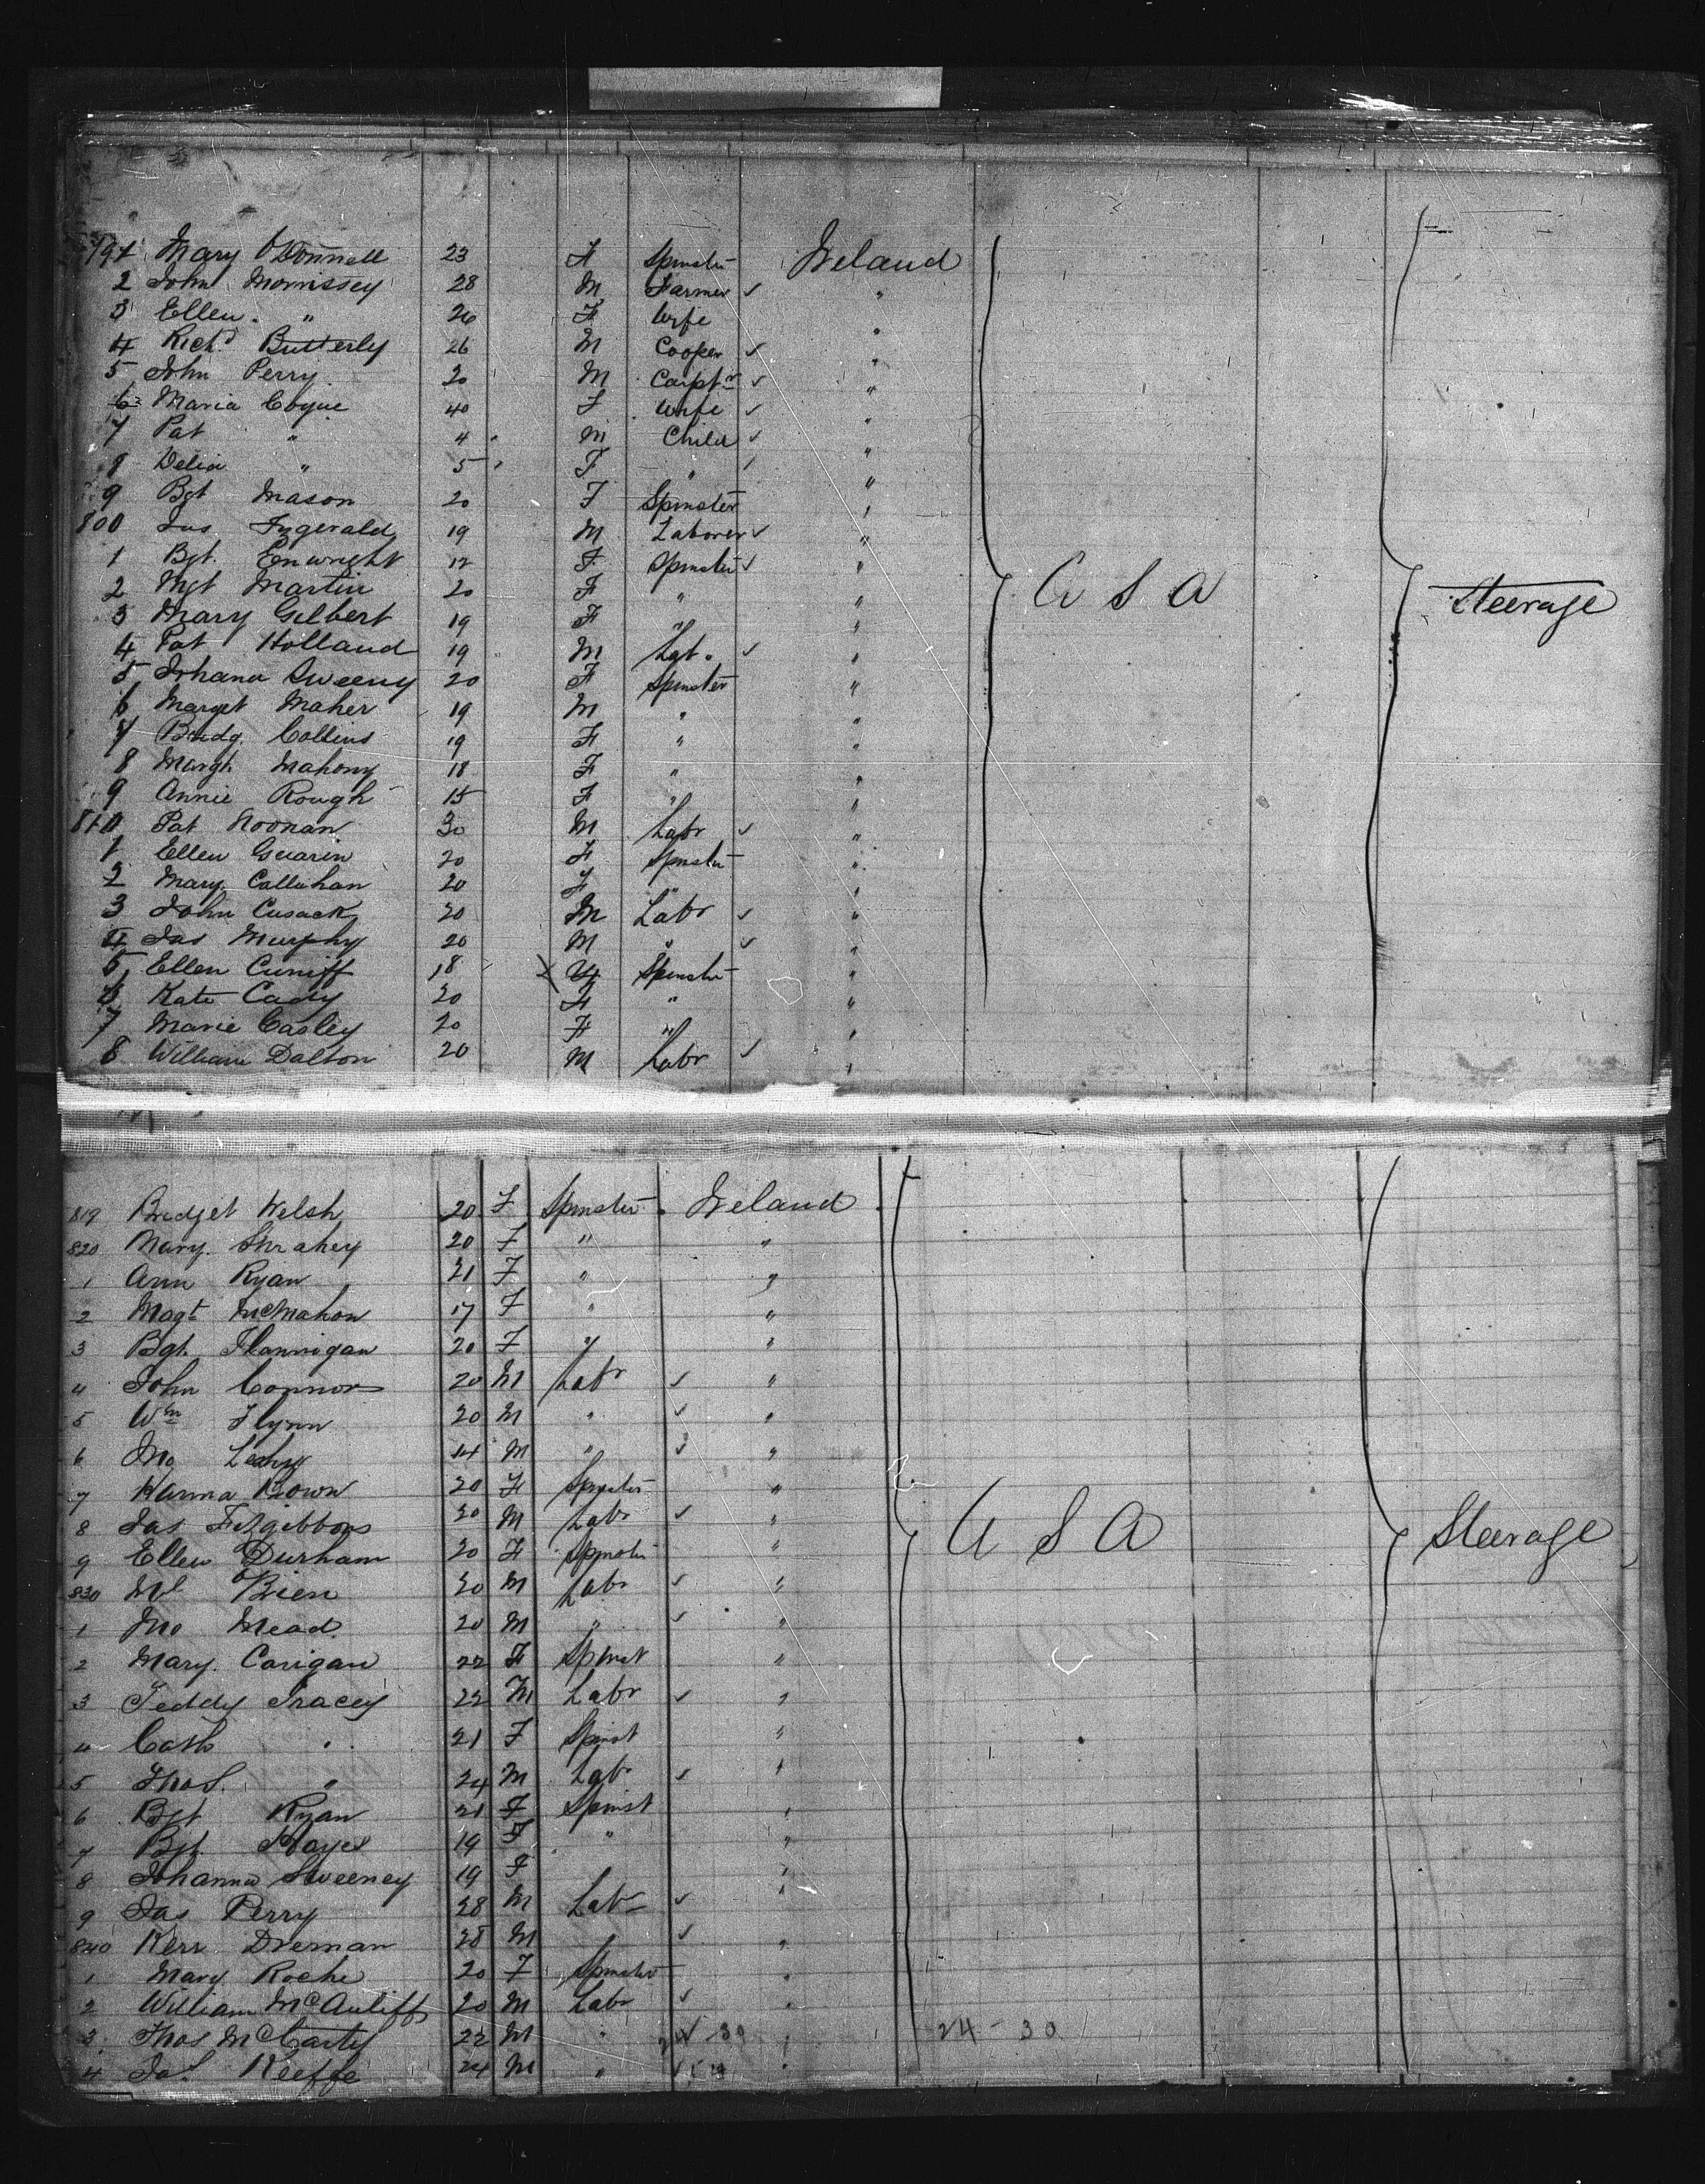 791 Mary O'Donnell 23 F Spinster Ireland
2 John Morrissey 28 M Farmer ✓ "
3 Ellen " 26 F Wife "
4 Richd Butterly 26 M Cooper ✓ "
5 John Perry 20 M Carptr ✓ "
6 Maria Coyne 40 F Wife ✓ "
7 Pat " 4 M Child ✓ "
8 Delia " 5 F " ✓ "
9 Bgt Mason 20 F Spinster "
800 Jas Fizgerald 19 M Laborer ✓ "
1 Bgt. Enwright 17 F Spinster ✓ "
2 Mgt Martin 20 F " "
U S A Steerage
3 Mary Gilbert 19 F " "
4 Pat Holland 19 M Lab. ✓ "
5 Johana Sweeny 20 F Spinster "
6 Marget Maher 19 M " "
7 Bridg. Collins 19 F " "
8 Margt Mahony 18 F " "
9 Annie Rough 15 F " "
810 Pat Noonan 30 M Labr ✓ "
1 Ellen Guarin 20 F Spinster "
2 Mary Callahan 20 F " "
3 John Cusack 20 M Labr ✓ "
4 Jas Murphy 20 M " ✓ "
5 Ellen Cuniff 18 F Spinster "
6 Kate Cady 20 F " "
7 Marie Casley 20 F " "
8 William Dalton 20 M Labr ✓ "
819 Bridget Welsh 20 F Spinster Ireland
820 Mary Shrahey 20 F " "
1 Ann Ryan 21 F " "
2 Magt McMahon 17 F " "
3 Bgt. Flannigan 20 F " "
4 John Connors 20 M Labr ✓ "
5 Wm Flynn 20 M " ✓ "
6 Jno Leahy 14 M " ✓ "
7 Hanna Bown 20 F Spinster "
8 Jas Fitzgibbons 20 M Labr ✓ "
U S A Steerage
9 Ellen Durham 20 F Spinster "
830 Ml Brien 20 M Labr ✓ "
1 Jno Mead 20 M " ✓ "
2 Mary. Carigan 22 F Spinst "
3 Teddy Tracey 22 M Labr ✓ "
4 Cath " 21 F Spinst "
5 Thos. " 24 M Labr ✓ "
6 Bgt Ryan 21 F Spinst "
7 Bgt. Hayes 19 F " "
8 Johanna Sweeney 19 F "
9 Jas Perry 28 M Labr ✓ "
840 Kerr Drennan 28 M ✓ "
1 Mary Roche 20 F Spinster "
2 William McAuliff 20 M Labr ✓ "
3 Thos McCarty 22 M " 24 30 " 24 - 30
4 Jas Keeffe 24 M " ✓ "